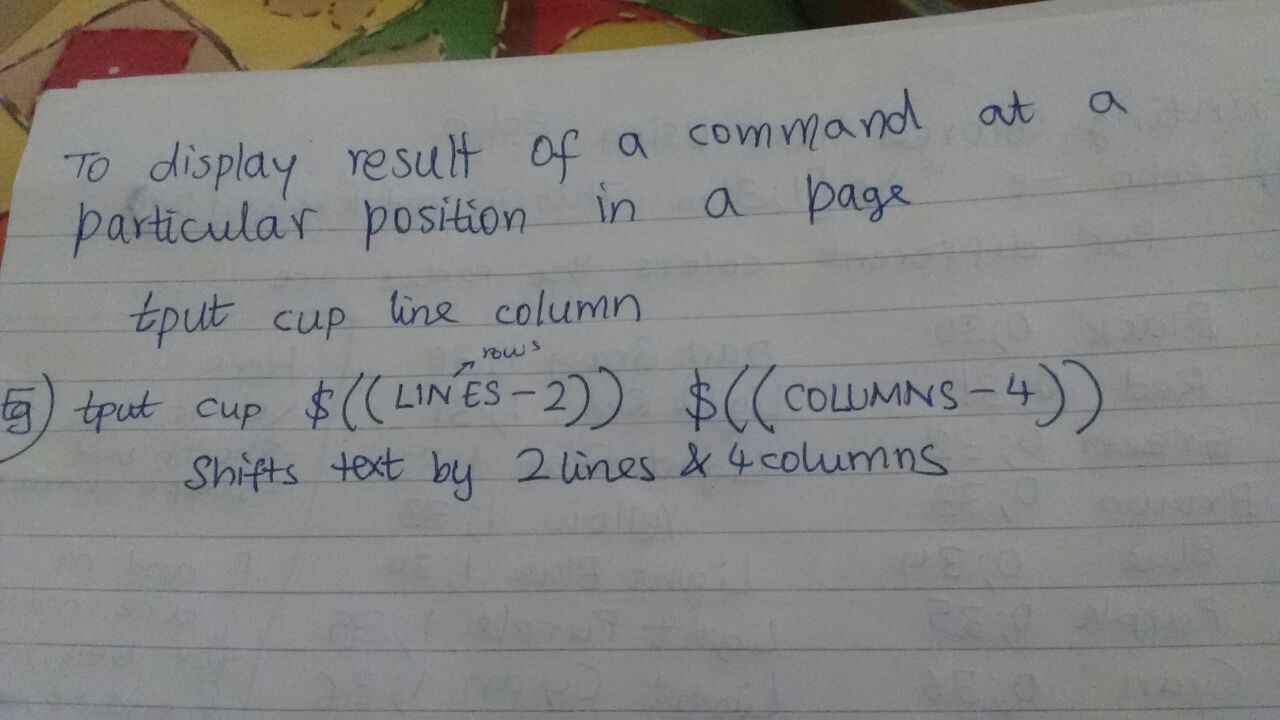 To display result of a command at a
particular position in a page
tput cup line column
rows
Eg) tput cup $((LINES-2)) $((COLUMNS-4))
Shifts text by 2 lines & 4 columns